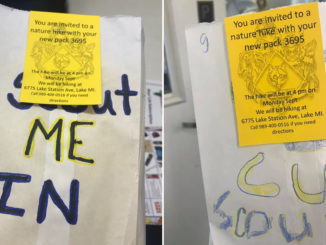 You are invited to a
nature hike with your
new pack 3695
The hike will be at 4 pm on
Monday Sept
We will be hiking at
6775 Lake Station Ave, Lake MI.
Call 989-400-0516 if you need
directions
Scout
ME
IN
9
You are invited to a
nature hike with your
new pack 3695
The hike will be at 4 pm on
Monday Sept.
We will be hiking at
6775 Lake Station Ave, Lake MI.
Call 989-400-0516 if you need
directions
CU
SCOU